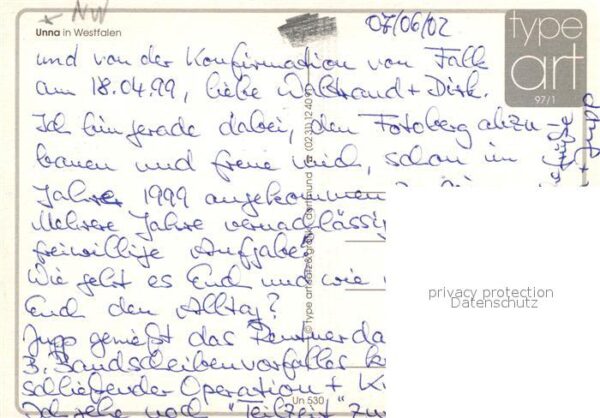 NW
Unna in Westfalen
07/06/02
type
art
97/1
und von der Konfirmation von Falk
am 18.04.99, liebe Waltraud + Dirk.
Ich bin gerade dabei, den Fotoberg abzu-
bauen und freue mich, schon im
Jahre 1999 angekommen
Mehrere Jahre vernachlässig
freiwillige Aufgabe
Wie geht es Euch und wie
Euch den Alltag?
Jupp genießt das Rentnerda
3. Bandscheibenvorfalles
schließender Operation +
Ich gehe noch "Teilzeit" zu
Un 530
privacy protection
Datenschutz